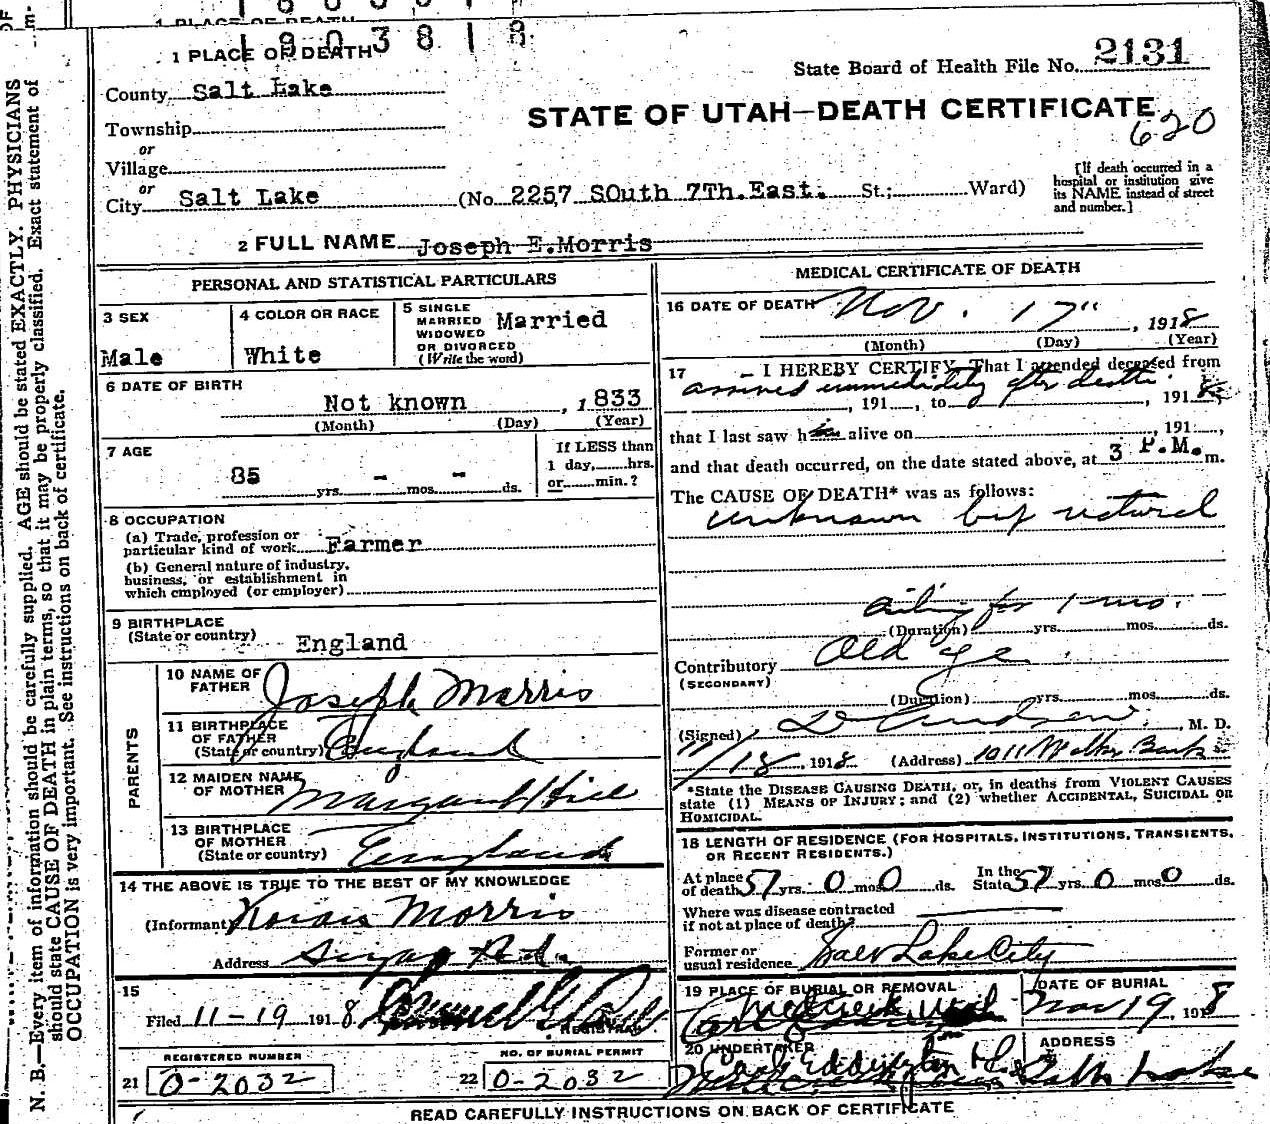 1 PLACE OF DEATH
1 9 0 3 8 1 8
1 PLACE OF DEATH
State Board of Health File No. 2131
County Salt Lake
STATE OF UTAH—DEATH CERTIFICATE
620
Township
or
Village
or
City Salt Lake (No. 2257 SOuth 7Th. East. St.; Ward)
[If death occurred in a hospital or institution give its NAME instead of street and number.]
2 FULL NAME Joseph E. Morris
PERSONAL AND STATISTICAL PARTICULARS
3 SEX
Male
4 COLOR OR RACE
White
5 SINGLE
MARRIED
WIDOWED
OR DIVORCED
(Write the word)
Married
6 DATE OF BIRTH
Not known, 1833
(Month) (Day) (Year)
7 AGE
85 yrs. - mos. - ds.
If LESS than
1 day, hrs.
or min.?
8 OCCUPATION
(a) Trade, profession or
particular kind of work Farmer
(b) General nature of industry,
business, or establishment in
which employed (or employer)
9 BIRTHPLACE
(State or country) England
PARENTS
10 NAME OF
FATHER Joseph Morris
11 BIRTHPLACE
OF FATHER
(State or country) England
12 MAIDEN NAME
OF MOTHER Margaret Hill
13 BIRTHPLACE
OF MOTHER
(State or country) England
14 THE ABOVE IS TRUE TO THE BEST OF MY KNOWLEDGE
(Informant) Morris
Address
15
Filed 11-19 1918
REGISTRAR
REGISTERED NUMBER
21 0-2032
NO. OF BURIAL PERMIT
22 0-2032
MEDICAL CERTIFICATE OF DEATH
16 DATE OF DEATH Nov. 17", 1918
(Month) (Day) (Year)
17 I HEREBY CERTIFY, That I attended deceased from
arrived immediately after death.
, 191 , to , 1918,
that I last saw him alive on , 191 ,
and that death occurred, on the date stated above, at 3 P.M. m.
The CAUSE OF DEATH* was as follows:
unknown but natural
ailing for 1 mo.
(Duration) yrs. mos. ds.
Contributory Old age.
(SECONDARY)
(Duration) yrs. mos. ds.
(Signed) , M. D.
11/18, 1918 (Address) 1011 Walker Bank
*State the DISEASE CAUSING DEATH, or, in deaths from VIOLENT CAUSES
state (1) MEANS OF INJURY; and (2) whether ACCIDENTAL, SUICIDAL OR
HOMICIDAL.
18 LENGTH OF RESIDENCE (FOR HOSPITALS, INSTITUTIONS, TRANSIENTS,
OR RECENT RESIDENTS.)
At place
of death 57 yrs. 0 mos. 0 ds.
In the
State 57 yrs. 0 mos. 0 ds.
Where was disease contracted
if not at place of death?
Former or
usual residence Salt Lake City
19 PLACE OF BURIAL OR REMOVAL
DATE OF BURIAL
Nov 19, 1918
20 UNDERTAKER
ADDRESS
Salt Lake
READ CAREFULLY INSTRUCTIONS ON BACK OF CERTIFICATE
N. B.—Every item of information should be carefully supplied. AGE should be stated EXACTLY. PHYSICIANS
should state CAUSE OF DEATH in plain terms, so that it may be properly classified. Exact statement of
OCCUPATION is very important. See instructions on back of certificate.